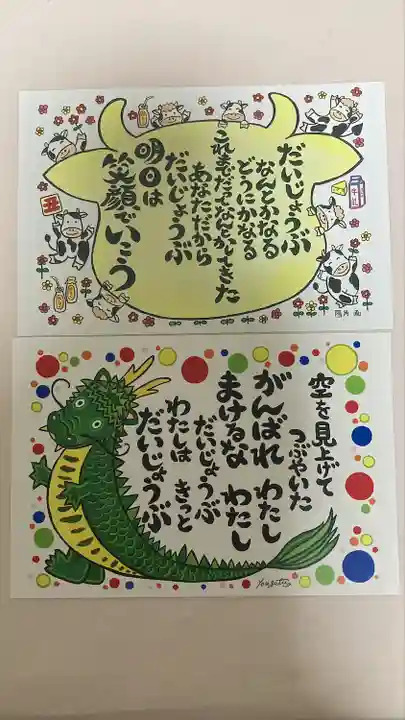 だいじょうぶ
なんとかなる
どうにかなる
これまだってなんとかしてきた
あなただから
だいじょうぶ
明日は
笑顔でいこう
丑
牛乳
空を見上げて
つぶやいた
がんばれ わたし
まけるな わたし
だいじょうぶ
わたしは きっと
だいじょうぶ